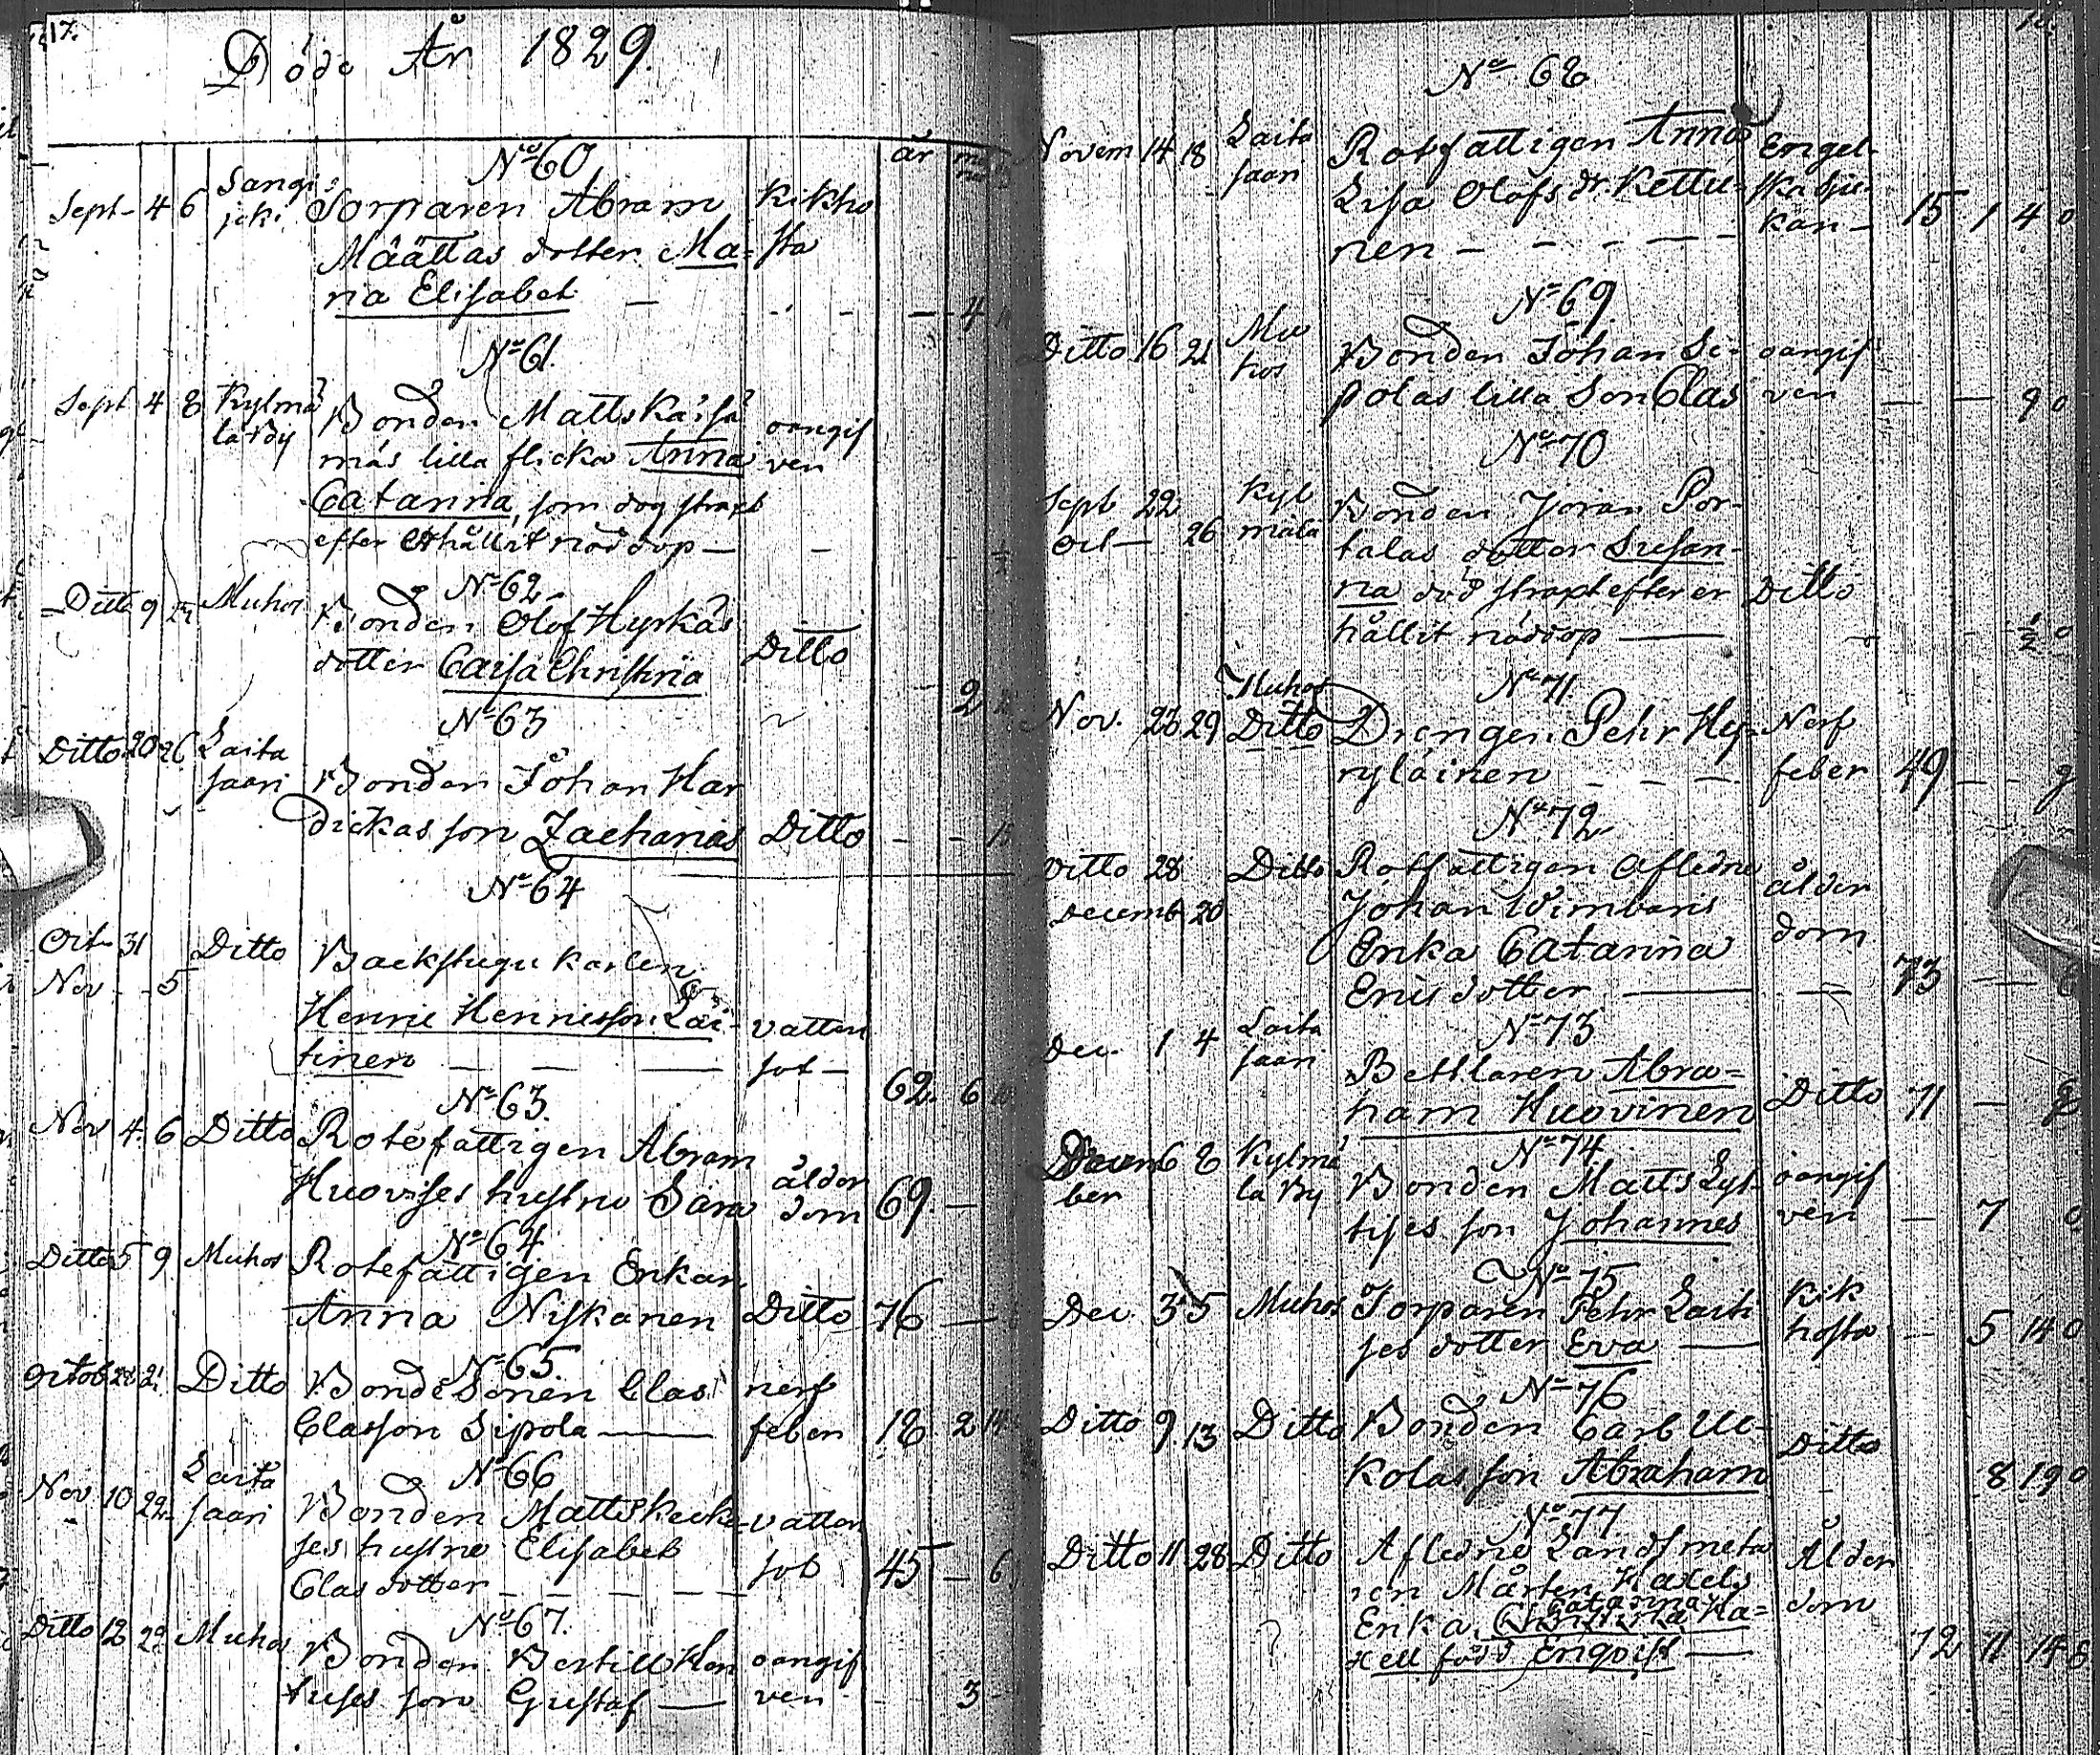 17.
Döde År 1829.
år
No 60
Sept- 4 6 Sangis
jeki
Torparen Abram
Kikho
Määttas dotter Ma=
sta
ria Elisabet - 4
No 61.
Sept 4 8 Kylmä
lä By
Bonden Matts Kaisä
oangif
mäs lilla flicka Anna
ven
Catarina, som dog straxt
efter erhållit nöddop -
No 62.
Ditto 9 Muhos
Bonden Olof Hyrkäs
dotter Caisa Christina
Ditto
2
No 63
Ditto 20 26 Laita
saari
Bonden Johan Har
dickas son Zacharias Ditto - -
No 64
Oct- 31 Ditto
Nov - - 5
Backstugu karlen
Henric Henricsson Lai-
vatten
tinen - - -
sot -
62. 6
No 63.
Nov 4. 6 Ditto
Rotefattigen Abram
Huovises hustru Sara
ålder
dom
69. -
No 64
Ditto 5 9 Muhos
Rotefattigen Enkan
Anna Niskanen Ditto 76 -
No 65.
Octob Ditto
Bonde Sonen Clas
nerf
Classon Sipola -
feber
18 2
No 66
Nov 10 22 Laita
saari
Bonden Matts Kecke-
vatten
ses hustru Elisabet
sot
Clas dotter - - - -
45 - 6
No 67.
Ditto 12 Muhos
Bonden Bertill Hen
oangif
tuses son Gustaf -
ven
3
No 68
Novem 14 18 Laita
saari
Rotfattigen Anna
Engel-
Lisa Olofs dr. Kettu-
ska sju-
nen - - - - -
kan -
15 1 4 0
No 69.
Ditto 16 21 Mu
hos
Bonden Johan Si-
oangif
polas lilla Son Clas
ven
- - 9 0
No 70
Sept 22
Oct - 26
Kyl
mälä
Bonden Jöran Por-
talas dotter Susan-
na död straxt efter er
Ditto
hållit nöddop -
- 1/2 0
No 71.
Muhos
Nov. 23 29 Ditto
Drengen Pehr Hy-
Nerf
ryläinen - - -
feber
49 - - 9
No 72.
Ditto 28 Ditto
Decemb 20
Rotfattigen Afledne
ålder
Johan Wimbaris
dom
Enka Catarina
Erics dotter - - 73 -
No 73
Dec. 1 4 Laita
saari
Bettlaren Abra=
ham Huovinen
Ditto 71 -
No 74
Decem 6 8
ber
Kylmä
lä By
Bonden Matts Lyt-
oangif
tises son Johannes
ven
- 7 0
No 75
Dec 3 5 Muhos
Torparen Pehr Laiti
Kik
ses dotter Eva -
hosta
- 5 14 0
No 76
Ditto 9 13 Ditto
Bonden Carl Uc-
Ditto
kolas son Abraham
- 8 19 0
No 77
Ditto 11 28 Ditto
Afledne Landtmeta
Ålder
ren Mårten Haxels
dom
Catarina
Enka, Christina Ha=
xell född Enqvist -
72 11 14